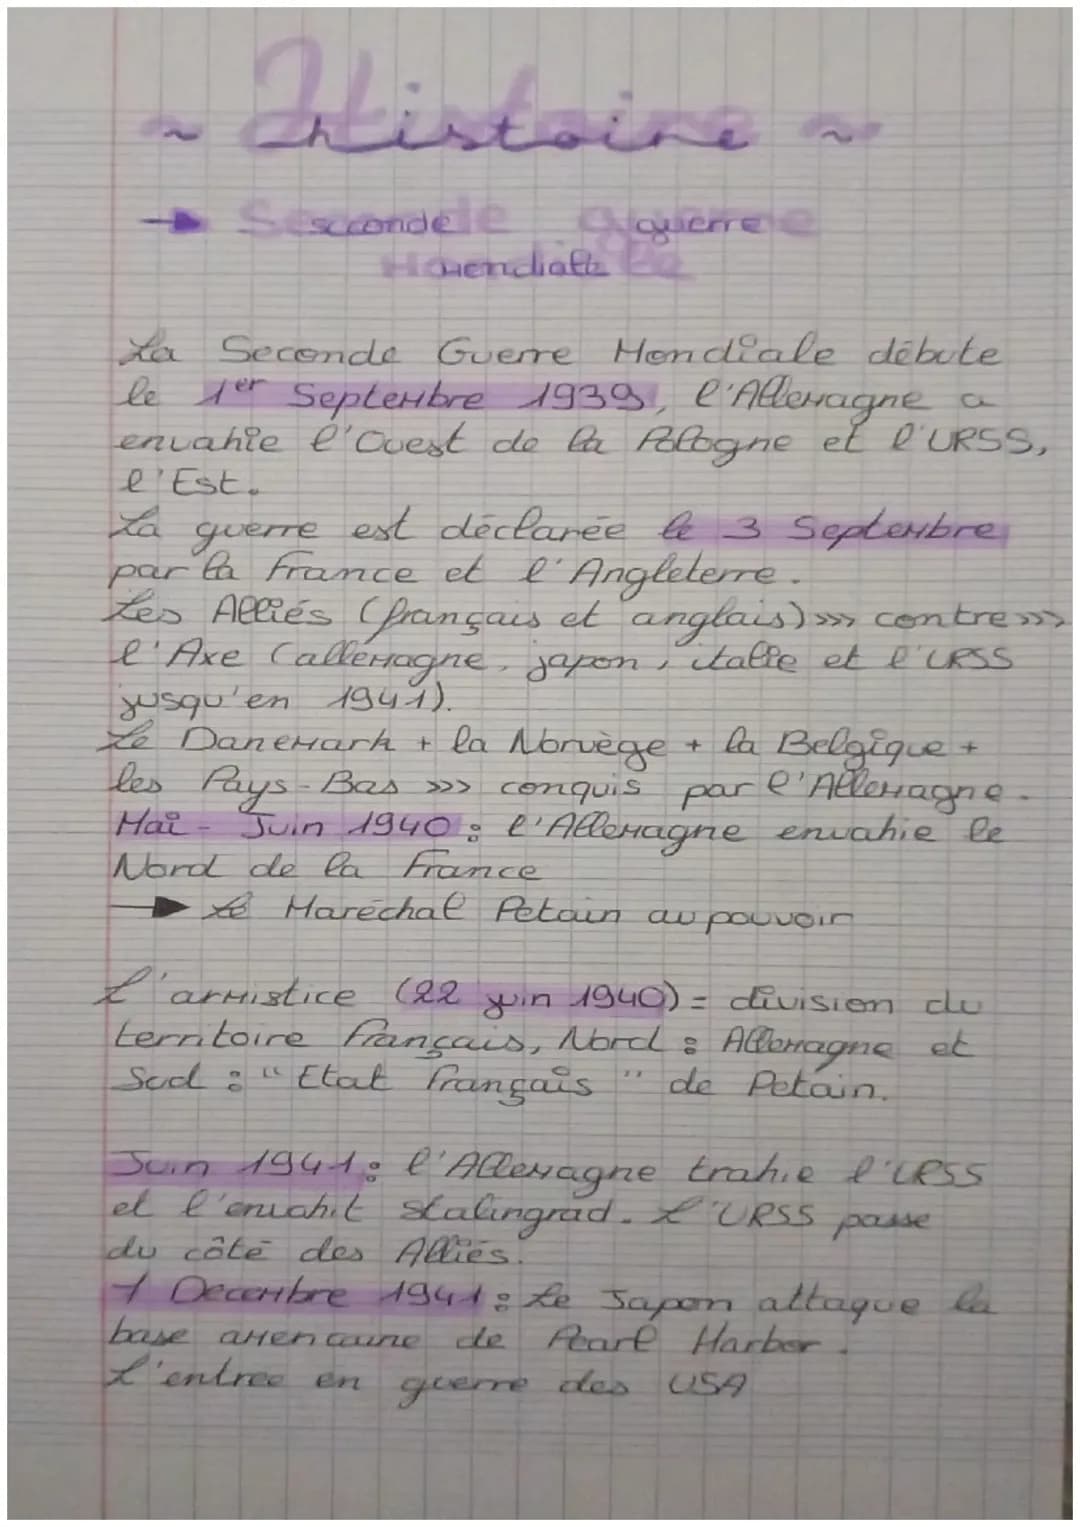 ~ Histoire ~
→ Seconde guerre
Mondiale
La Seconde Guerre Mondiale débute
le 1er Septembre 1939, l'Allemagne a
envahie l'Ouest de la Pologne et l'URSS,
l'Est.
La guerre est déclarée le 3 Septembre
par la France et l'Angleterre.
Les Alliés (français et anglais) >>> contre >>>
l'Axe (allemagne, japon, italie et l'URSS
jusqu'en 1941).
Le Danemark + la Norvège + la Belgique +
les Pays-Bas >>> conquis par l'Allemagne.
Mai - Juin 1940 : l'Allemagne envahie le
Nord de la France
→ Le Maréchal Petain au pouvoir
L'armistice (22 juin 1940) = division du
territoire Français, Nord : Allemagne et
Sud : "Etat Français" de Petain.
Juin 1941 : l'Allemagne trahie l'URSS
et l'envahit stalingrad. L'URSS passe
du côté des Alliés.
7 Decembre 1941 : Le Japon attaque la
base américaine de Pearl Harbor.
L'entree en guerre des USA